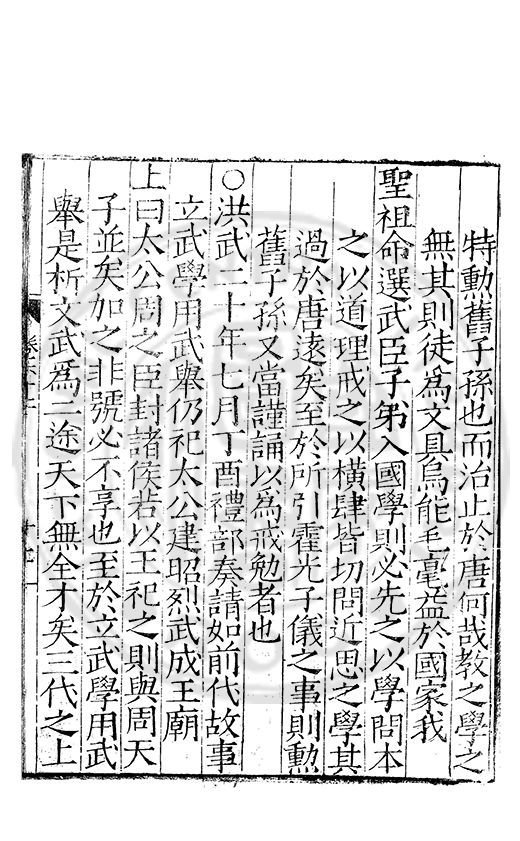 特勳舊子孫也而治止於唐何哉教之學之
無其則徒為文具烏能毛毫益於國家我
聖祖命選武臣子弟入國學則必先之以學問本
之以道理戒之以橫肆皆切問近思之學其
過於唐遠矣至於所引霍光子儀之事則勳
舊子孫又當謹誦以為戒勉者也
○洪武二十年七月丁酉禮部奏請如前代故事
立武學用武舉仍祀太公建昭烈武成王廟
上曰太公周之臣封諸侯若以王祀之則與周天
子並矣加之非號必不享也至於立武學用武
舉是析文武為二途天下無全才矣三代之上